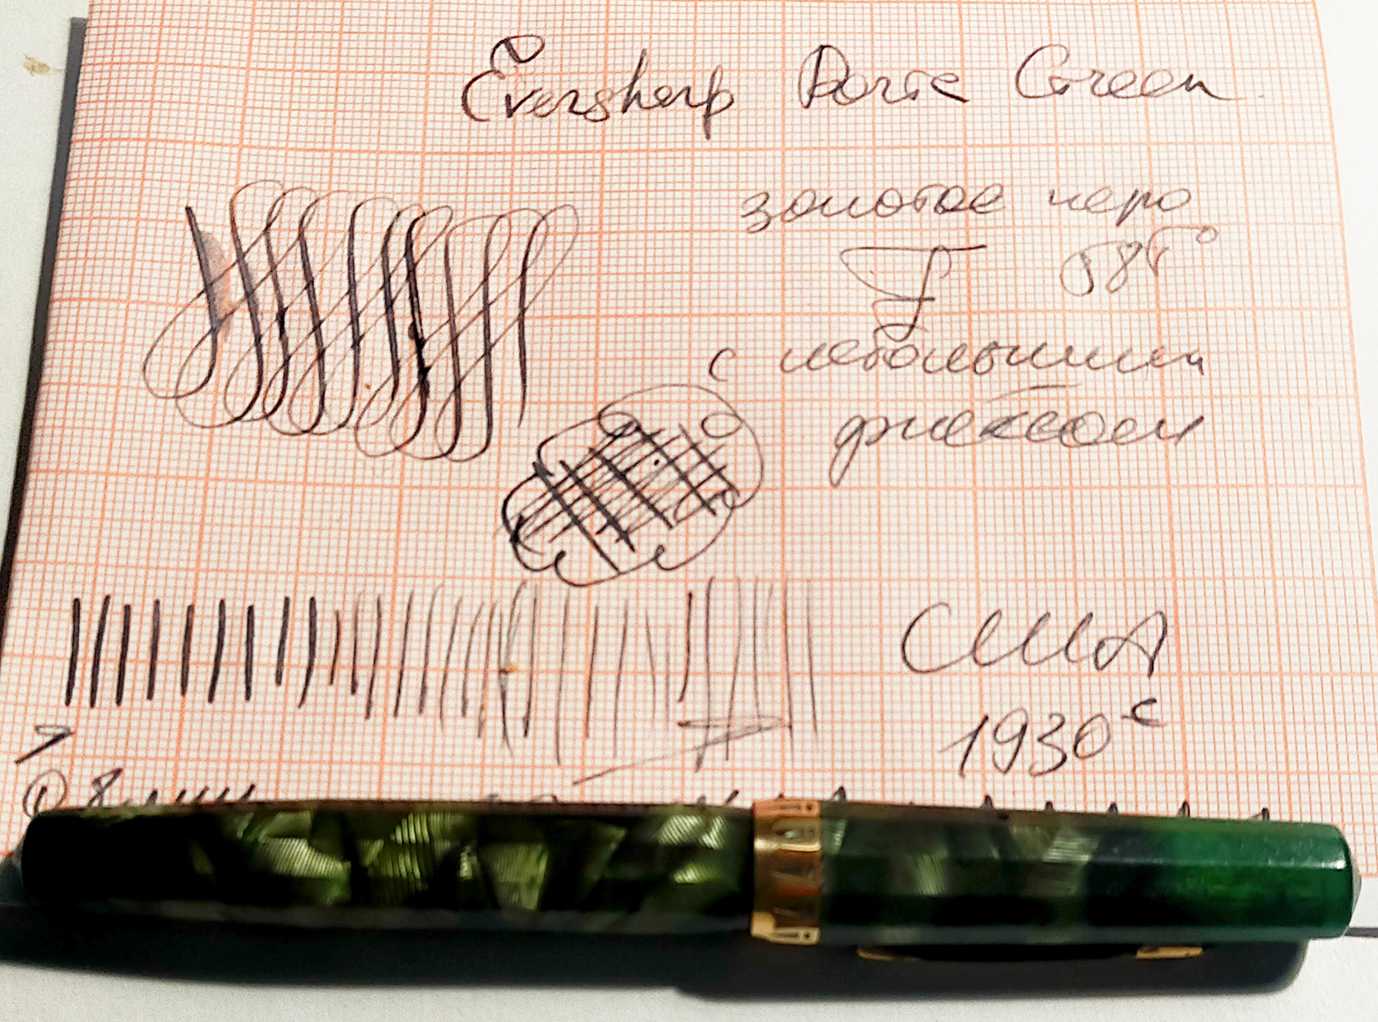 Eversharp Doric Green
золотое перо
F 585°
с небольшим
флексом
США
1930е